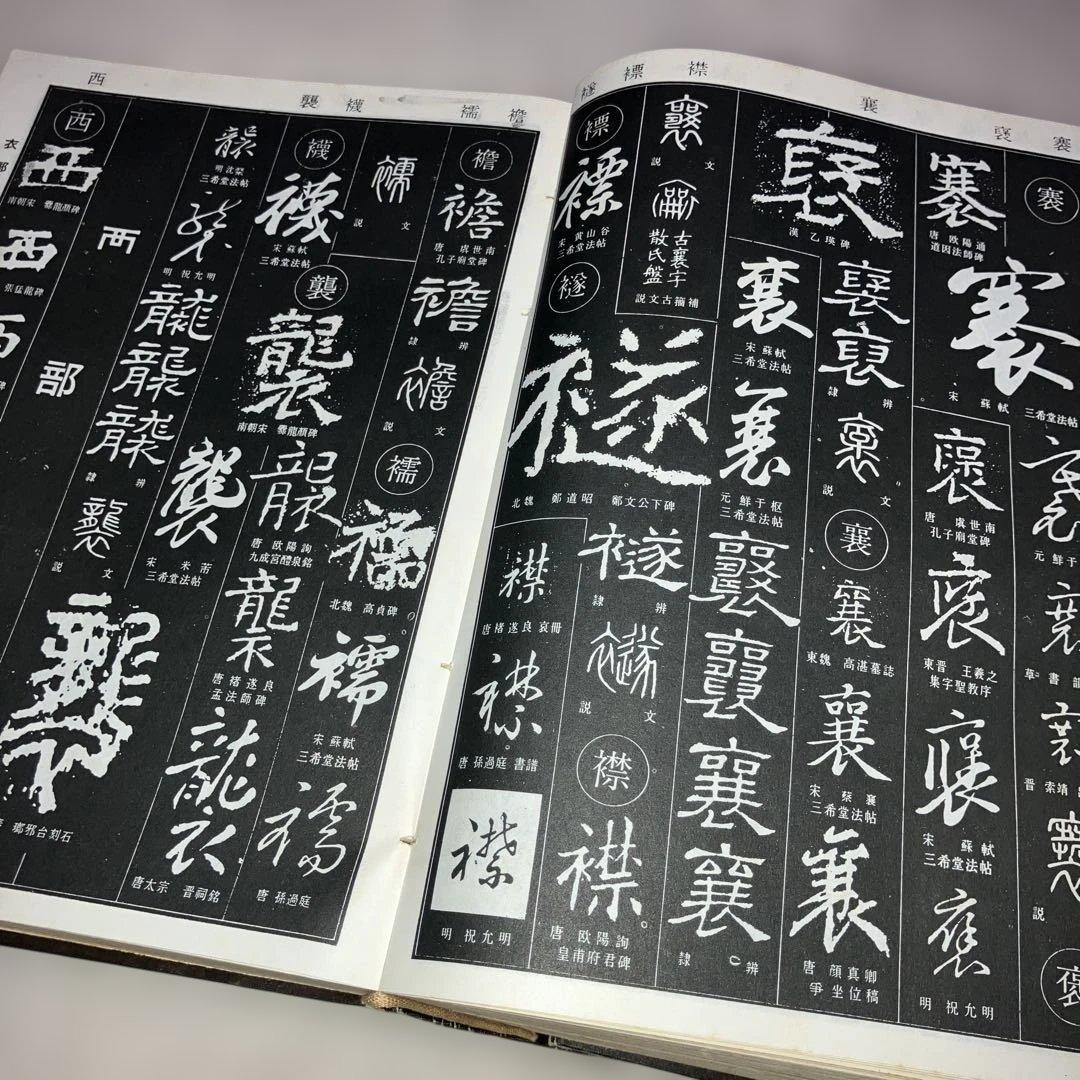 襚 褾 襟 襄 褎 褰
褰
褰
唐 欧陽通
道因法師碑
褰
宋 蘇軾
三希堂法帖
褎
唐 虞世南
孔子廟堂碑
東晋 王羲之
集字聖教序
宋 蘇軾
三希堂法帖
明 祝允明
元 鮮于
草書韻
晋 索靖
説
漢 乙瑛碑
隷辨
説文
襄
襄
東魏 高湛墓誌
襄
宋 蔡襄
三希堂法帖
襄
唐 顔真卿
爭坐位稿
宋 蘇軾
三希堂法帖
元 鮮于枢
三希堂法帖
襄
襄
隷辨
説文
古襄字
散氏盤
説文古籀補
褾
褾
宋 黄山谷
三希堂法帖
襚
襚
北魏 鄭道昭 鄭文公下碑
襚
隷辨
襚
説文
襟
襟
唐 欧陽詢
皇甫府君碑
襟
唐 褚遂良 哀冊
襟
唐 孫過庭 書譜
襟
明 祝允明
西 襲 襪 襦 襜
衣部
襜
襜
唐 虞世南
孔子廟堂碑
襜
隷辨
襜
説文
襦
襦
北魏 高貞碑
襦
宋 蘇軾
三希堂法帖
襦
唐 孫過庭
襦
説文
襪
襪
宋 蘇軾
三希堂法帖
襲
襲
南朝宋 爨龍顔碑
襲
唐 欧陽詢
九成宮醴泉銘
襲
唐 褚遂良
孟法師碑
襲
唐太宗 晋祠銘
襲
明 沈粲
三希堂法帖
襲
明 祝允明
襲
襲
襲
隷辨
襲
宋 米芾
三希堂法帖
襲
説文
襲
瑯邪台刻石
襾部
西
西
南朝宋 爨龍顔碑
西
張猛龍碑
西
碑